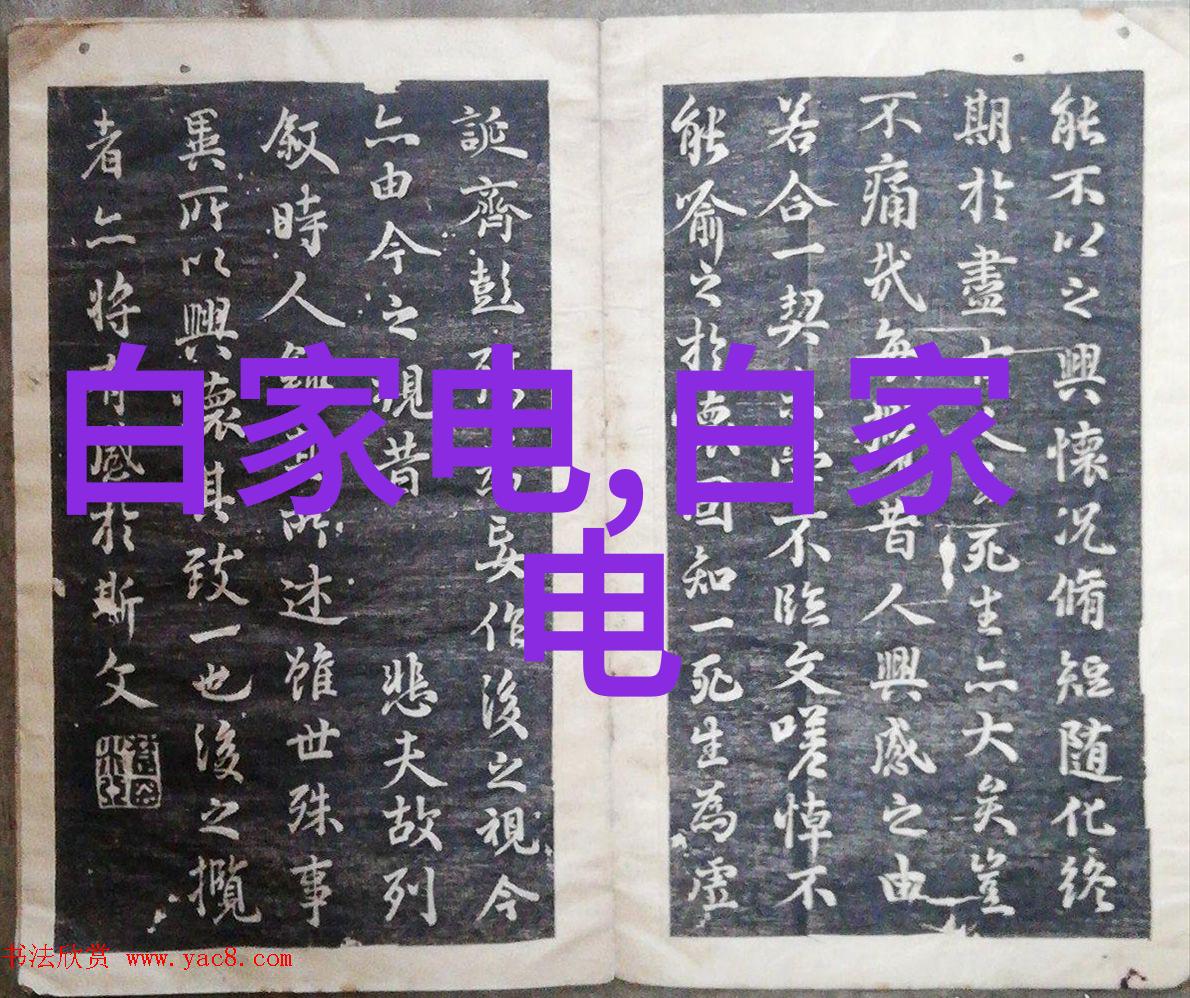 白家电,白家
电
能不以之興懷況脩短随化終
期於盡古人云死生亦大矣豈
不痛哉每攬昔人興感之由
若合一契未嘗不臨文嗟悼不
能喻之於懷固知一死生為虛
誕齊彭殤為妄作後之視今
亦由今之視昔 悲夫故列
敘時人錄其所述雖世殊事
異所以興懷其致一也後之攬
者亦將有感於斯文
书法欣赏 www.yac8.com